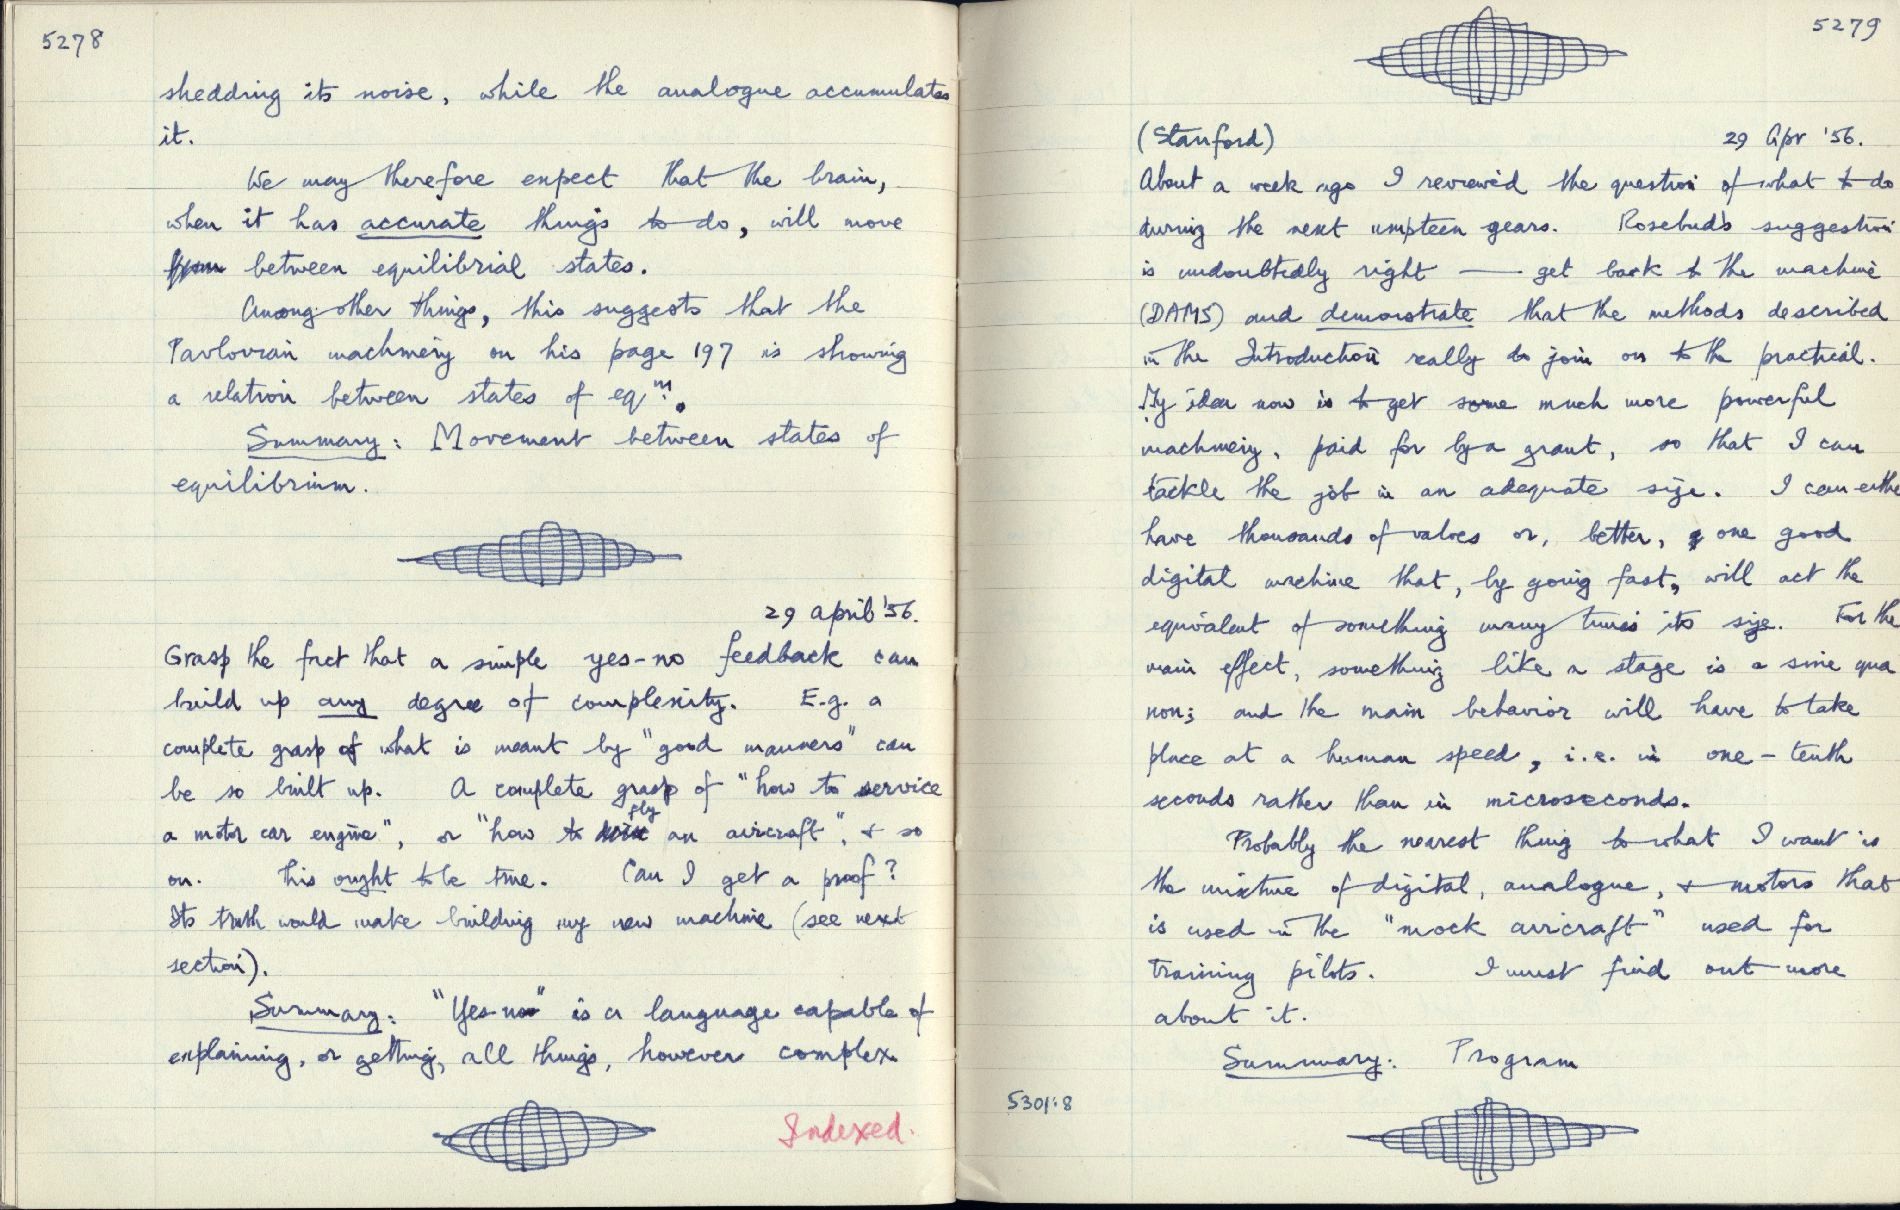 5278
shedding its noise, while the analogue accumulates
it.
We may therefore expect that the brain,
when it has accurate things to do, will move
between equilibrial states.
Among other things, this suggests that the
Pavlovian machinery on his page 197 is showing
a relation between states of eqm.
Summary: Movement between states of
equilibrium.
29 April '56.
Grasp the fact that a simple yes-no feedback can
build up any degree of complexity. E.g. a
complete grasp of what is meant by "good manners" can
be so built up. A complete grasp of "how to service
a motor car engine", or "how to fly an aircraft", & so
on. This ought to be true. Can I get a proof?
Its truth would make building my new machine (see next
section).
Summary: "Yes-no" is a language capable of
explaining, or getting, all things, however complex.
Indexed.
5279
(Stanford) 29 Apr '56.
About a week ago I reviewed the question of what to do
during the next umpteen years. Rosebud's suggestion
is undoubtedly right — get back to the machine
(DAMS) and demonstrate that the methods described
in the Introduction really do join on to the practical.
My idea now is to get some much more powerful
machinery, paid for by a grant, so that I can
tackle the job in an adequate size. I can eithe
have thousands of valves or, better, one good
digital machine that, by going fast, will act the
equivalent of something many times its size. For the
main effect, something like a stage is a sine qua
non; and the main behavior will have to take
place at a human speed, i.e. in one-tenth
seconds rather than in microseconds.
Probably the nearest thing to what I want is
the mixture of digital, analogue, & motors that
is used in the "mock aircraft" used for
training pilots. I must find out more
about it.
Summary: Program
5301:8